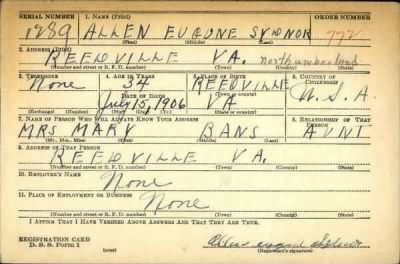 SERIAL NUMBER 1. NAME (Print) ORDER NUMBER
1289 ALLEN EUGONE SYDNOR 772
(First) (Middle) (Last)
2. ADDRESS (Print)
REEDVILLE VA. Northumberland
(Number and street or R. F. D. number) (Town) (County) (State)
3. TELEPHONE 4. AGE IN YEARS 5. PLACE OF BIRTH 6. COUNTRY OF CITIZENSHIP
None 34 REEDVILLE
DATE OF BIRTH (Town or county) U.S.A
July 15, 1906 VA
(Exchange) (Number) (Mo.) (Day) (Yr.) (State or country)
7. NAME OF PERSON WHO WILL ALWAYS KNOW YOUR ADDRESS 8. RELATIONSHIP OF THAT PERSON
MRS MARY BANS AUNT
(Mr., Mrs., Miss) (First) (Middle) (Last)
9. ADDRESS OF THAT PERSON
REEDVILLE VA.
(Number and street or R. F. D. number) (Town) (County) (State)
10. EMPLOYER'S NAME
None
11. PLACE OF EMPLOYMENT OR BUSINESS
None
(Number and street or R. F. D. number) (Town) (County) (State)
I AFFIRM THAT I HAVE VERIFIED ABOVE ANSWERS AND THAT THEY ARE TRUE.
REGISTRATION CARD
D. S. S. Form 1 (over) (Registrant's signature)